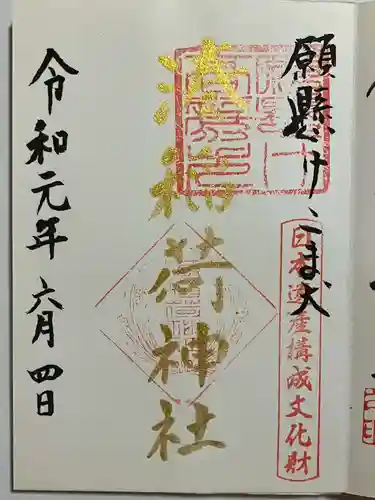 願懸けこま犬
日本遺産構成文化財
稲荷神社
令和元年六月四日